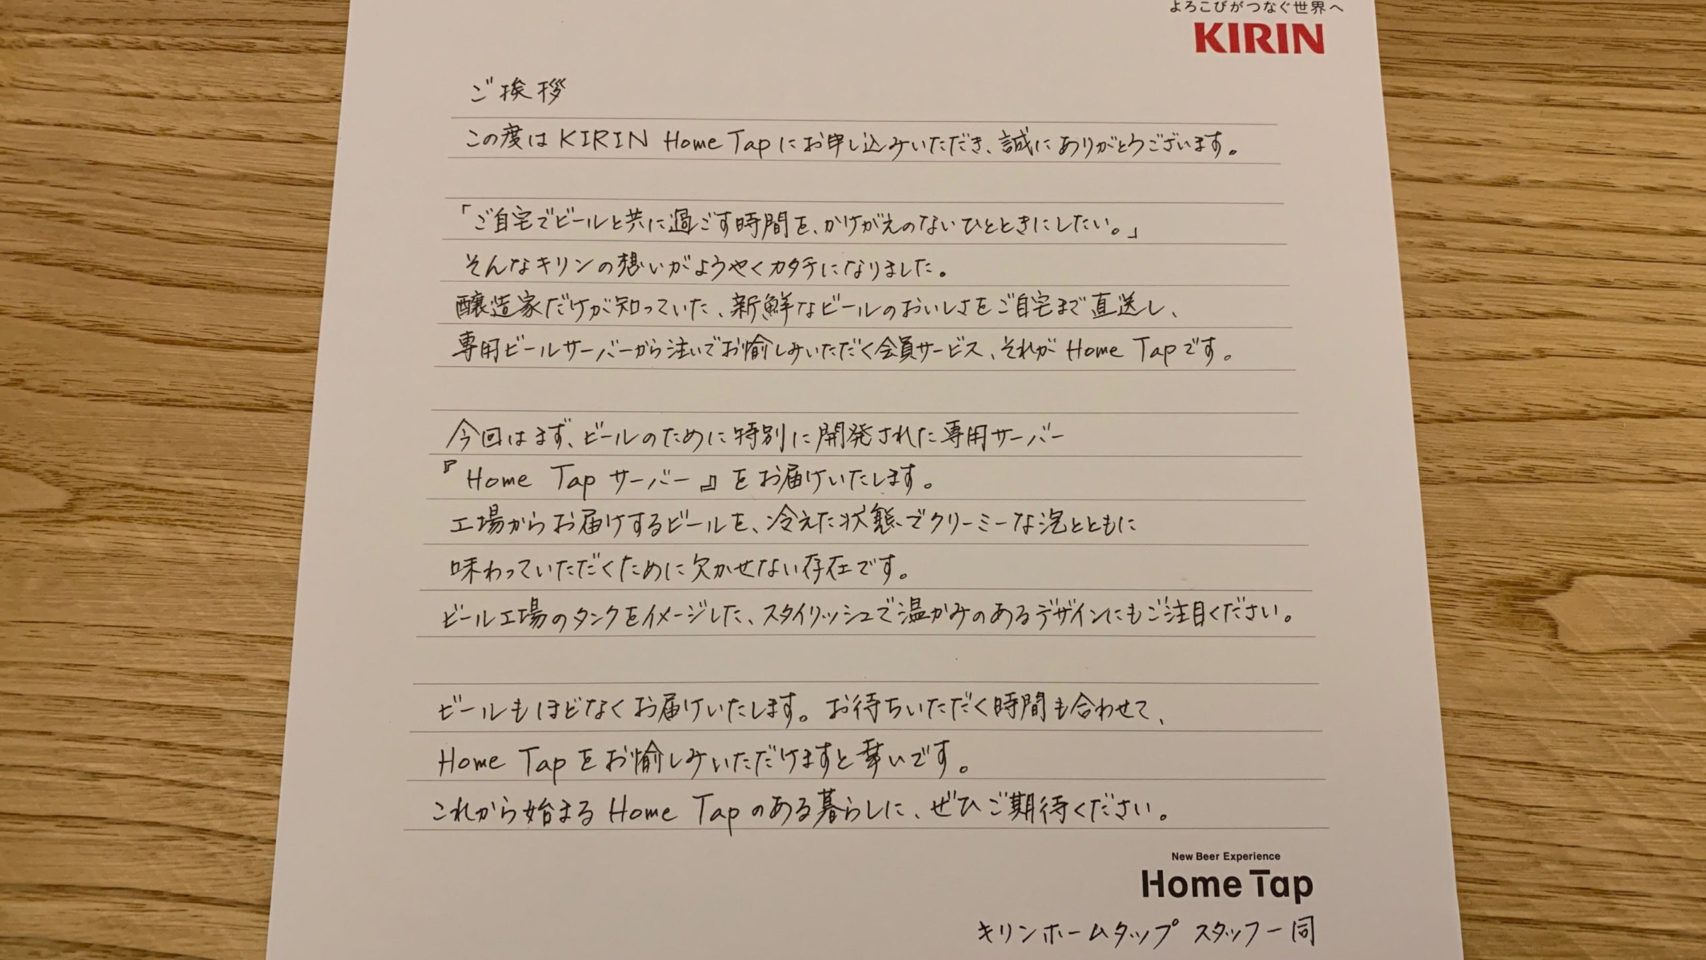 よろこびがつなぐ世界へ
KIRIN
ご挨拶
この度はKIRIN Home Tapにお申し込みいただき、誠にありがとうございます。
「ご自宅でビールと共に過ごす時間を、かけがえのないひとときにしたい。」
そんなキリンの想いがようやくカタチになりました。
醸造家だけが知っていた、新鮮なビールのおいしさをご自宅まで直送し、
専用ビールサーバーから注いでお愉しみいただく会員サービス、それがHome Tapです。
今回はまず、ビールのために特別に開発された専用サーバー
『Home Tapサーバー』をお届けいたします。
工場からお届けするビールを、冷えた状態でクリーミーな泡とともに
味わっていただくために欠かせない存在です。
ビール工場のタンクをイメージした、スタイリッシュで温かみのあるデザインにもご注目ください。
ビールもほどなくお届けいたします。お待ちいただく時間も合わせて、
Home Tapをお愉しみいただけますと幸いです。
これから始まるHome Tapのある暮らしに、ぜひご期待ください。
New Beer Experience
Home Tap
キリンホームタップ スタッフ一同